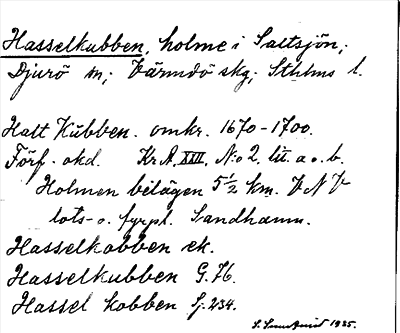 Hasselkubben, holme i Saltsjön;
Djurö sn; Värmdö skg; Sthlms l.
Halt Kubben. omkr. 1670-1700.
Förf. okd. Kr A, XXII, N:o 2, lit. a o. b.
Holmen belägen 5 1/2 km. V N V
lots- o. fyrpl. Sandhamn.
Hasselkobben ek.
Hasselkubben G.76.
Hassel kobben Sj. 234.
1925.